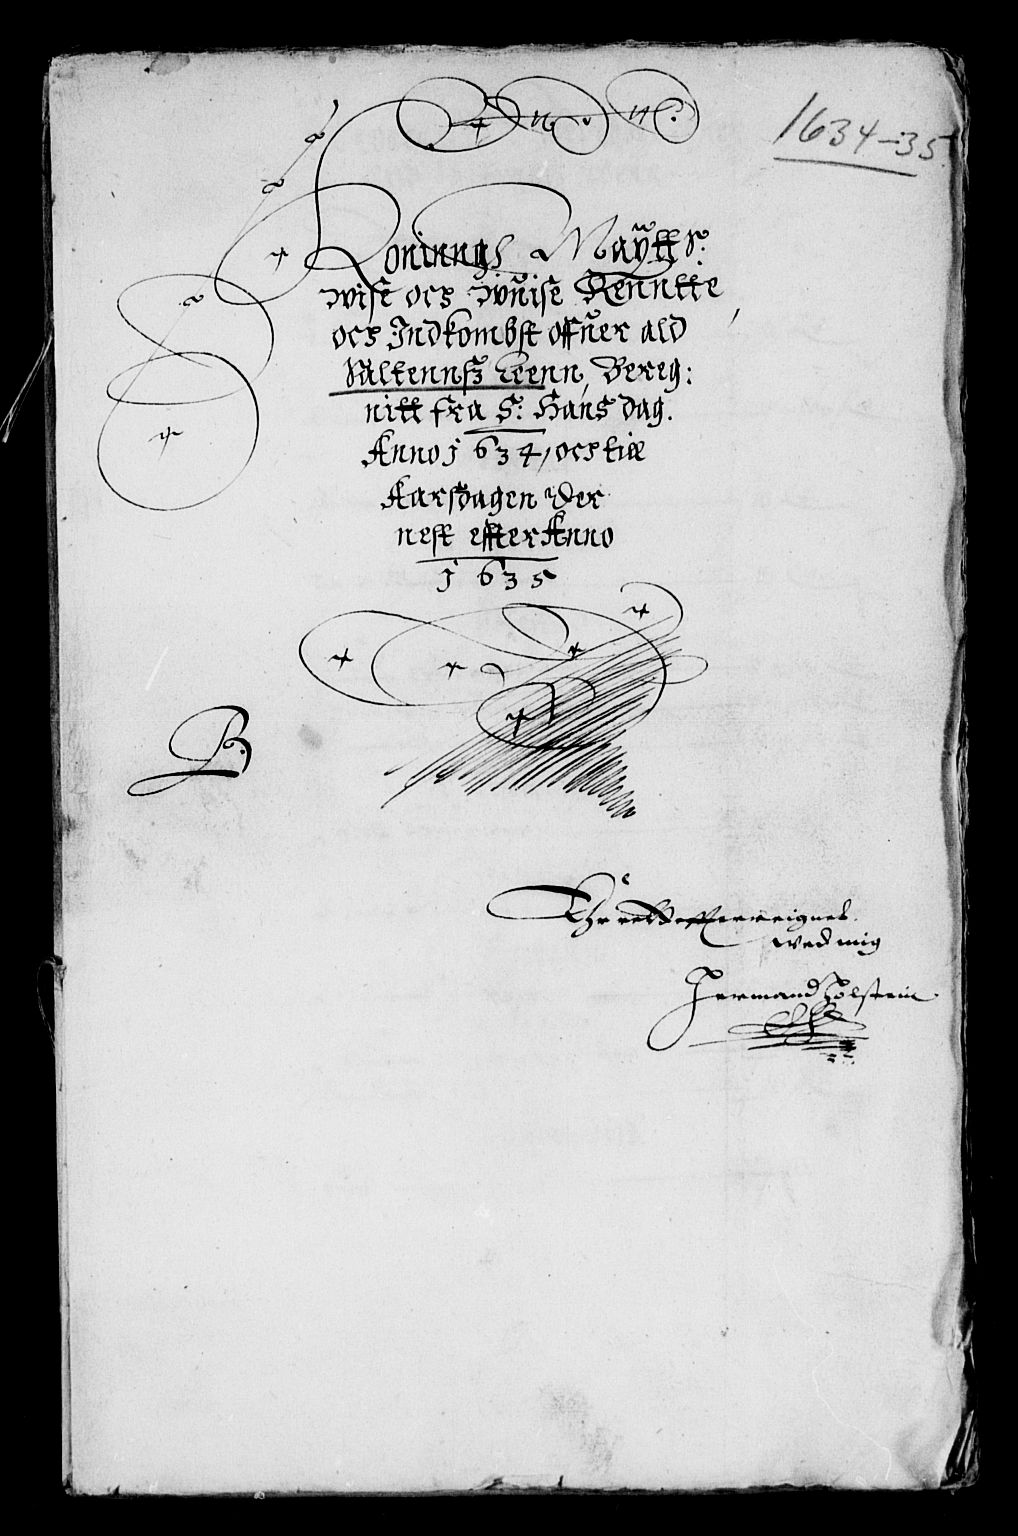 1634-35.
Konings Maÿtts:
wise ocs wuise Renntte
ocs Indkombst offuer ald
Saltennsz Leenn, Bereg:
nitt fra S: Hans dag.
Anno 1634, ocs till
Aarsdagen der
nest effter Anno
1635
B.
wed mig
Hermand Holstein